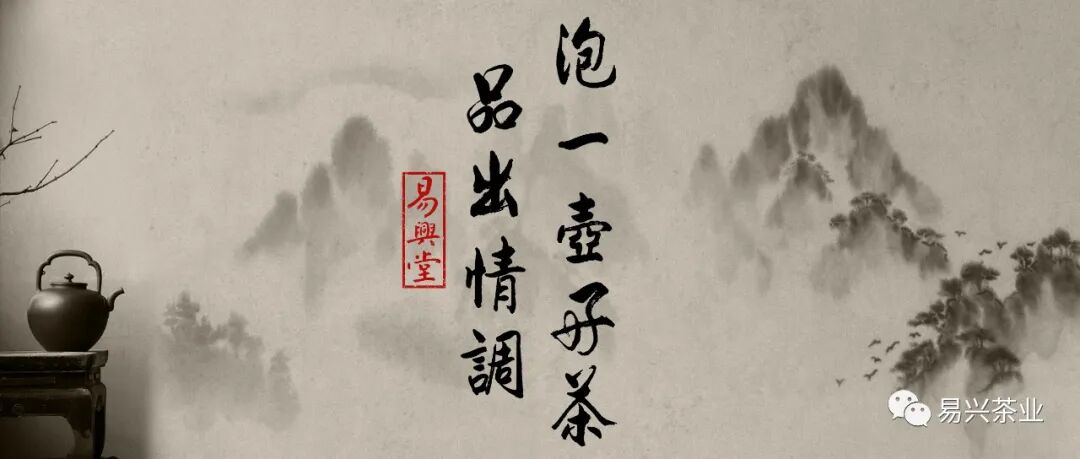 泡一壺好茶
品出情調
易興堂
易兴茶业